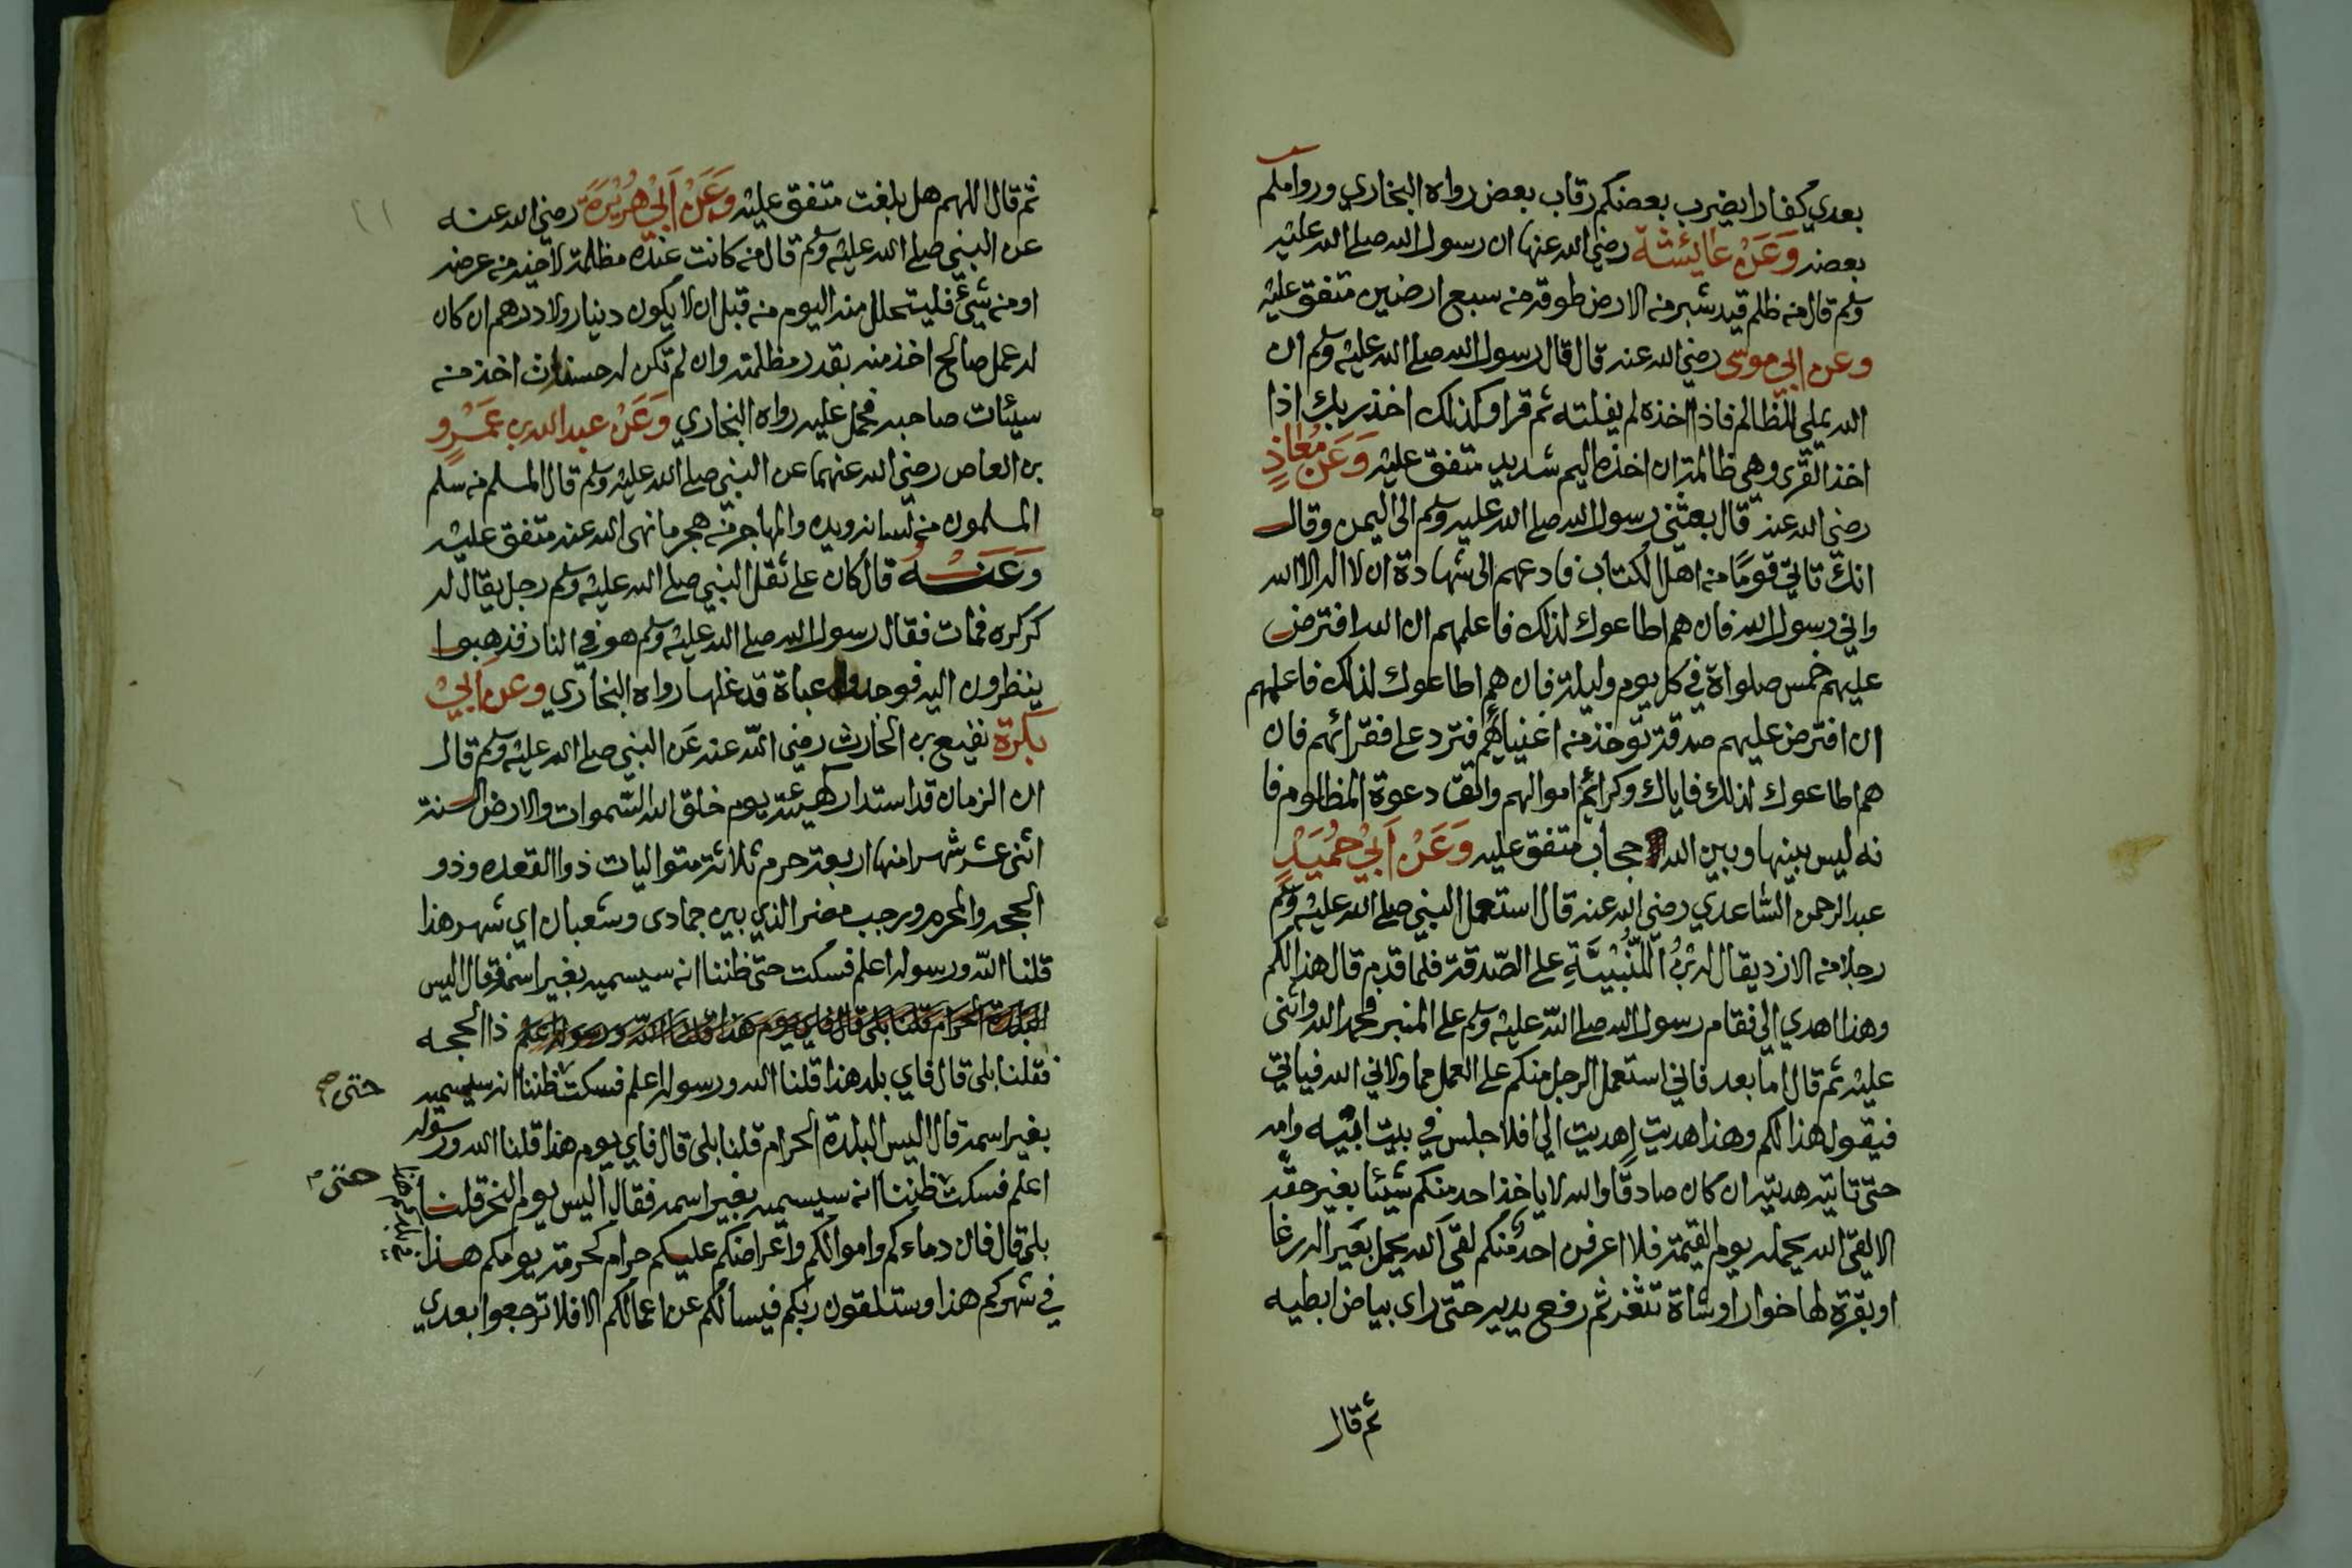 بعدي كفارا يضرب بعضكم رقاب بعض رواه البخاري وروا
بعضه وَعَنْ عَائِشَةَ رضي الله عنها ان رسول الله صلى الله عليه
وسلم قال من ظلم قيد شبر من الارض طوقه من سبع ارضين متفق عليه
وعن ابي موسى رضي الله عنه قال قال رسول الله صلى الله عليه وسلم ان
الله يملي للظالم فاذا اخذه لم يفلته ثم قرا وكذلك اخذ ربك اذا
اخذ القرى وهي ظالمة ان اخذه اليم شديد متفق عليه وَعَنْ مُعَاذٍ
رضي الله عنه قال بعثني رسول الله صلى الله عليه وسلم الى اليمن وقال
انك تاتي قومًا من اهل الكتاب فادعهم الى شهادة ان لا اله الا الله
واني رسول الله فان هم اطاعوك لذلك فاعلمهم ان الله افترض
عليهم خمس صلواة في كل يوم وليلة فان هم اطاعوك لذلك فاعلمهم
ان افترض عليهم صدقة تؤخذ من اغنياهم فترد على فقرائهم فان
هم اطاعوك لذلك فاياك وكرائم اموالهم واتق دعوة المظلوم فا
نه ليس بينها وبين الله حجاب متفق عليه وَعَنْ اَبِيْ حُمَيْدٍ
عبد الرحمن السّاعدي رضي الله عنه قال استعمل النبي صلى الله عليه وسلم
رجلا من الازد يقال له ابْنُ اللُّتْبِيَّةِ على الصّدقة فلما قدم قال هذا لكم
وهذا اهدي الي فقام رسول الله صلى الله عليه وسلم على المنبر فحمد الله واثنى
عليه ثم قال اما بعد فاني استعمل الرجل منكم على العمل مما ولاني الله فياتي
فيقول هذا لكم وهذا هديت اهديت الي افلا جلس في بيت ابيه وامه
حتى تاتيه هديته ان كان صادقًا والله لا ياخذ احد منكم شيئا بغير حقه
الا لقي الله يحمله يوم القيمة فلا اعرفن احد منكم لقي الله يحمل بعيرا له رغا
او بقرة لها خوار او شاة تثغر ثم رفع يديه حتى راى بياض ابطيه
ثم قال
ثم قال اللهم هل بلغت متفق عليه وَعَنْ اَبِيْ هُرَيْرَةَ رضي الله عنه
عن النبي صلى الله عليه وسلم قال من كانت عنده مظلمة لاخيه من عرضه
او من شيئ فليتحلل منه اليوم من قبل ان لا يكون دينار ولا درهم ان كان
له عمل صالح اخذ منه بقدر مظلمته وان لم تكن له حسنات اخذ من
سيئات صاحبه فحمل عليه رواه البخاري وَعَنْ عبد الله بن عَمْرٍو
بن العاص رضي الله عنهما عن النبي صلى الله عليه وسلم قال المسلم من سلم
المسلمون من لسانه ويده والمهاجر من هجر ما نهى الله عنه متفق عليه
وَعَنْهُ قال كان على ثقل النبي صلى الله عليه وسلم رجل يقال له
كركره فمات فقال رسول الله صلى الله عليه وسلم هو في النار فذهبوا
ينظرون اليه فوجدوا عباة قد غلها رواه البخاري وعن ابي
بكرة نفيع بن الحارث رضي الله عنه عن النبي صلى الله عليه وسلم قال
ان الزمان قد استدار كهيئته يوم خلق الله السّموات والارض السنة
اثنى عشر شهرا منها اربعة حرم ثلاثة متواليات ذو القعده وذو
الحجه والمحرم ورجب مضر الذي بين جمادى وشعبان اي شهر هذا
قلنا الله ورسوله اعلم فسكت حتى ظننا انه سيسميه بغير اسمه فقال اليس
البلدة الحرام قلنا بلى قال فاي يوم هذا قلنا الله ورسوله اعلم ذا الحجه
فقلنا بلى قال فاي بلد هذا قلنا الله ورسوله اعلم فسكت ظننا انه سيسميه
حتى صح
بغير اسمه قال اليس البلدة الحرام قلنا بلى قال فاي يوم هذا قلنا الله ورسوله
اعلم فسكت ظننا انه سيسميه بغير اسمه فقال اليس يوم النحر قلنا
حتى
بلى قال فان دماءكم واموالكم واعراضكم عليكم حرام كحرمة يومكم هذا
في شهركم هذا وستلقون ربكم فيسألكم عن اعمالكم الا فلا ترجعوا بعدي